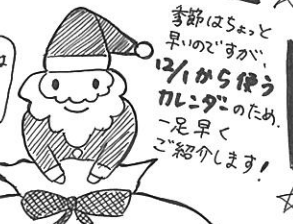 季節はちょっと
早いのですが、
12/1から使う
カレンダーのため、
一足早く
ご紹介します!
は